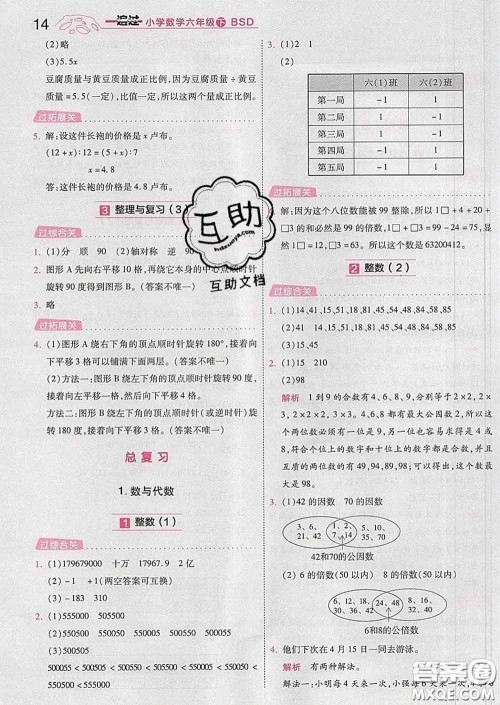 14 一遍过 小学数学六年级 下 BSD
(2)略
(3)5.5x
豆腐质量与黄豆质量成正比例,因为豆腐质量÷黄豆
质量=5.5(一定),比值一定,所以这两个量成正比例。
过拓展关
5. 解:设这件长袍的价格是 x 卢布。
(12+x):12=(5+x):7
x=4.8
答:这件长袍的价格是 4.8 卢布。
3 整理与复习(3)
过综合关
1. (1)分 顺 90 (2)轴对称 逆 90
2. 图形 A 先向右平移 10 格,再绕它本身的中心点顺时针
旋转 90 度。(答案不唯一)
3. 略
过拓展关
4. (1)图形 A 绕右下角的顶点顺时针旋转 180°,接着向
下平移 3 格可以铺满下面两层。(答案不唯一)
(2)方法一:图形 B 绕左下角的顶点顺时针旋转 90 度,
接着向下平移 4 格。(答案不唯一)
方法二:图形 B 绕左下角的顶点顺时针(或逆时针)旋
转 180 度,接着向下平移 3 格。(答案不唯一)
总复习
1. 数与代数
1 整数(1)
过综合关
1. (1)179679000 十万 17967.9 2 亿
(2)-1 +1(两空答案可互换)
(3)-183 310
2. (1)555000 505500
(2)550500 505050
(3)500055 500505
500055<500505<505050<505500<550050<
550500<555000
3. (1)2 1
(2)
六(1)班 六(2)班
第一局 -1 1
第二局 1 -1
第三局 -1 1
第四局 -1 1
第五局 1 -1
过拓展关
解:因为这个八位数能被 99 整除,所以 1□+4+20+
□3+62 的和必须是 99 的倍数,而 1□+4+20+
□3+62=99,所以 1□+□3=99-4-20-62=13,
1□、□3 必须是 10、03,所以这个数是 63200412。
2 整数(2)
过综合关
1. (1)14,41,15,51,18,81,45,54,48,84,58,85
(2)14,18,48,84,54,58
(3)15,45,85
(4)15,51,18,81,45,54,48,84
2. (1)15 210
(2)98
解析 1 到 9 的合数有 4、6、8、9,分别等于 2×2、2×
3、2×2×2、3×3,因为有最大公因数 2,所以
这个两位数必须以 4、6、8 中的数组合而成,同时
符合个位上的数字和十位上的数字都是合数,并且互
质的两位数有 49,94,89,98;因为它是偶数,所以最
大是 98。
3. (1)42 的因数 70 的因数
3、6、
21、42
1、2、
7、14
5、10、
35、70
42和70的公因数
(2)6 的倍数(50 以内) 8 的倍数(50 以内)
6、12、18、
30、36、42
24、48
8、16、
32、40
6和8的公倍数
4. 他们下次在 4 月 15 日一同去游泳。
解析 有两种解法。
解法一:小明每 4 天来一次,小强每 6 天来一次,4 和 6
互助
hdkuaiye.com
互助文档
答案圈
MXQE.COM